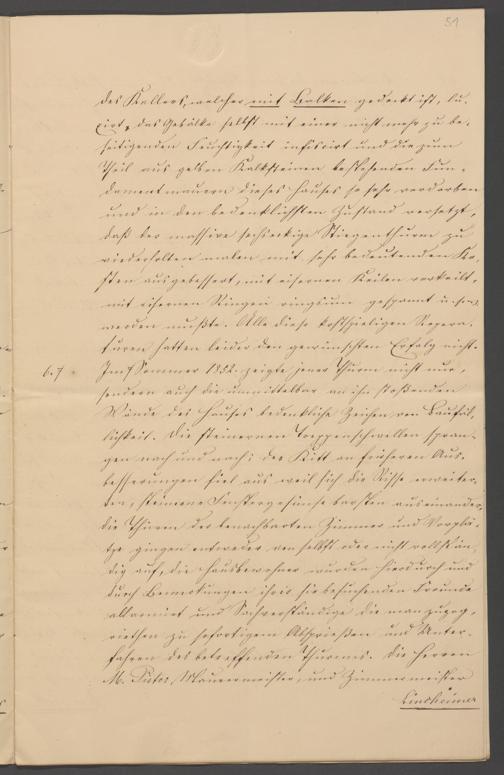 51
des Kellers, welcher mit Balken gedeckt ist, lu-
cirt, das Gebälke selbst mit einer nicht mehr zu be-
seitigenden Feuchtigkeit inficirt und die zum
Theil aus gelben Kalksteinen bestehenden Fun-
damentmauern dieses Hauses so sehr verdorben
und in den bedenklichsten Zustand versetzt,
daß der massive sechseckige Stiegenthurm zu
wiederholten malen mit sehr bedeutenden Ko-
sten ausgebessert, mit eisernen Keilen verkeilt,
mit eisernen Ringen ringsum gespannt u.s.w.
werden mußte. Alle diese kostspieligen Repera-
turen hatten leider den gewünschten Erfolg nicht.
6.7 Im Sommer 1852 zeigte jener Thurm nicht nur,
sondern auch die unmittelbar an ihn stoßenden
Wände des Hauses bedenkliche Zeichen von Baufäl-
lichkeit. Die steinernen Treppenschwellen spran-
gen nach und nach; der Kitt an früheren Aus-
besserungen fiel aus weil sich die Risse erweiter-
ten, steinerne Fenstergesimse barsten auseinander,
die Thüren der benachbarten Zimmer und Vorplä-
tze gingen entweder von selbst oder nicht vollstän-
dig auf, die Hausbewohner wurden hierdurch und
durch Bemerkungen ihrer sie besuchenden Freunde
allarmirt und Sachverständige die man zuzog,
riethen zu sofortigem Absprießen und Unter-
fahren des betreffenden Thurmes. Die Herren
M. Maurermeister, und Zimmermeister
Linsheimer